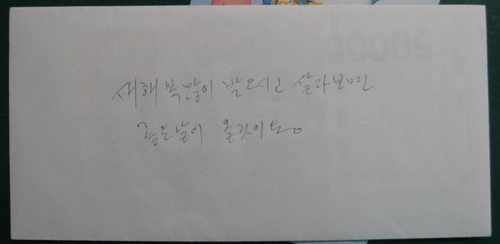 새해 복 많이 받으시고 살라보면
좋은날이 올것이오